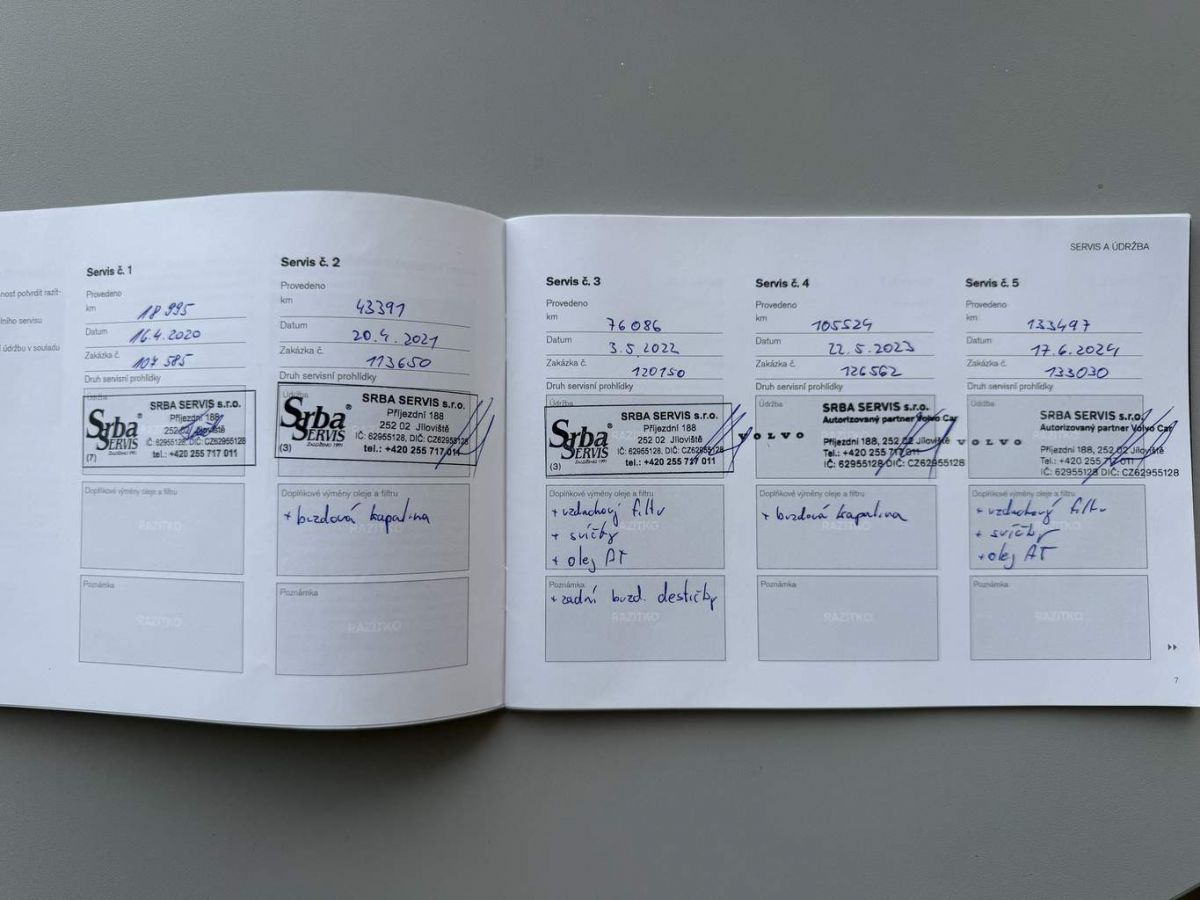 nost potvrdit razít-
lního servisu
í údržbu v souladu
Servis č. 1
Provedeno
km 18 995
Datum 16.4.2020
Zakázka č. 107 585
Druh servisní prohlídky
Údržba
Srba SERVIS
ZALOŽENO 1991
(7)
SRBA SERVIS s.r.o.
Příjezdní 188
252 02 Jíloviště
IČ: 62955128, DIČ: CZ62955128
tel.: +420 255 717 011
Doplňkové výměny oleje a filtru
RAZÍTKO
Poznámka
RAZÍTKO
Servis č. 2
Provedeno
km 43391
Datum 20.4.2021
Zakázka č. 113650
Druh servisní prohlídky
Údržba
Srba SERVIS
ZALOŽENO 1991
(3)
SRBA SERVIS s.r.o.
Příjezdní 188
252 02 Jíloviště
IČ: 62955128, DIČ: CZ62955128
tel.: +420 255 717 011
Doplňkové výměny oleje a filtru
+ brzdová kapalina
RAZÍTKO
Poznámka
RAZÍTKO
SERVIS A ÚDRŽBA
Servis č. 3
Provedeno
km 76086
Datum 3.5.2022
Zakázka č. 120150
Druh servisní prohlídky
Údržba
Srba SERVIS
ZALOŽENO 1991
(3)
SRBA SERVIS s.r.o.
Příjezdní 188
252 02 Jíloviště
IČ: 62955128, DIČ: CZ62955128
tel.: +420 255 717 011
Doplňkové výměny oleje a filtru
+ vzduchový filtr
+ svíčky
+ olej AT
RAZÍTKO
Poznámka
+ zadní brzd. destičky
RAZÍTKO
Servis č. 4
Provedeno
km 105524
Datum 22.5.2023
Zakázka č. 126562
Druh servisní prohlídky
Údržba
VOLVO
SRBA SERVIS s.r.o.
Autorizovaný partner Volvo Car
Příjezdní 188, 252 02 Jíloviště
Tel.: +420 255 717 011
IČ: 62955128 DIČ: CZ62955128
Doplňkové výměny oleje a filtru
+ brzdová kapalina
RAZÍTKO
Poznámka
RAZÍTKO
Servis č. 5
Provedeno
km 133497
Datum 17.6.2024
Zakázka č. 133030
Druh servisní prohlídky
Údržba
VOLVO
SRBA SERVIS s.r.o.
Autorizovaný partner Volvo Car
Příjezdní 188, 252 02 Jíloviště
Tel.: +420 255 717 011
IČ: 62955128 DIČ: CZ62955128
Doplňkové výměny oleje a filtru
+ vzduchový filtr
+ svíčky
+ olej AT
RAZÍTKO
Poznámka
RAZÍTKO
7